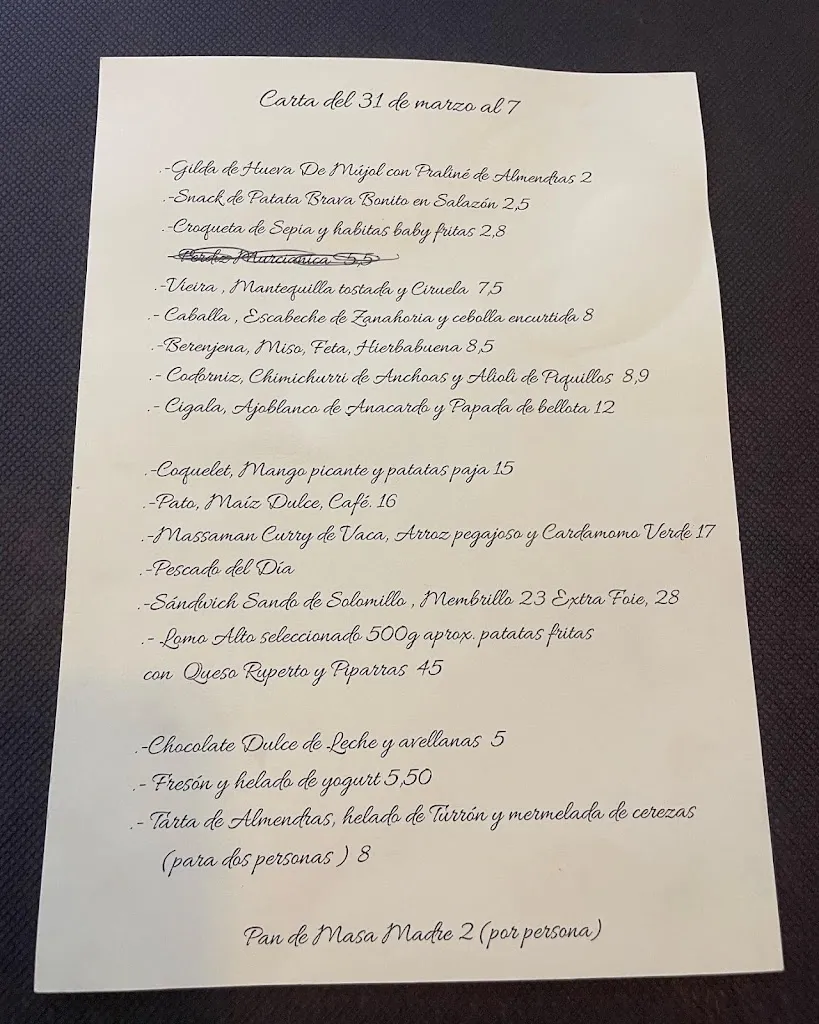 Carta del 31 de marzo al 7
.-Gilda de Hueva De Mújol con Praliné de Almendras 2
.-Snack de Patata Brava Bonito en Salazón 2,5
.-Croqueta de Sepia y habitas baby fritas 2,8
Perdiz Murcianica 5,5
.-Vieira , Mantequilla tostada y Ciruela 7,5
.- Caballa , Escabeche de Zanahoria y cebolla encurtida 8
.-Berenjena, Miso, Feta, Hierbabuena 8,5
.- Codorniz, Chimichurri de Anchoas y Alioli de Piquillos 8,9
.- Cigala, Ajoblanco de Anacardo y Papada de bellota 12
.-Coquelet, Mango picante y patatas paja 15
.-Pato, Maíz Dulce, Café. 16
.-Massaman Curry de Vaca, Arroz pegajoso y Cardamomo Verde 17
.-Pescado del Día
.-Sándwich Sando de Solomillo , Membrillo 23 Extra Foie, 28
.- Lomo Alto seleccionado 500g aprox. patatas fritas
con Queso Ruperto y Piparras 45
.-Chocolate Dulce de Leche y avellanas 5
.- Fresón y helado de yogurt 5,50
.- Tarta de Almendras, helado de Turrón y mermelada de cerezas
(para dos personas ) 8
Pan de Masa Madre 2 (por persona)